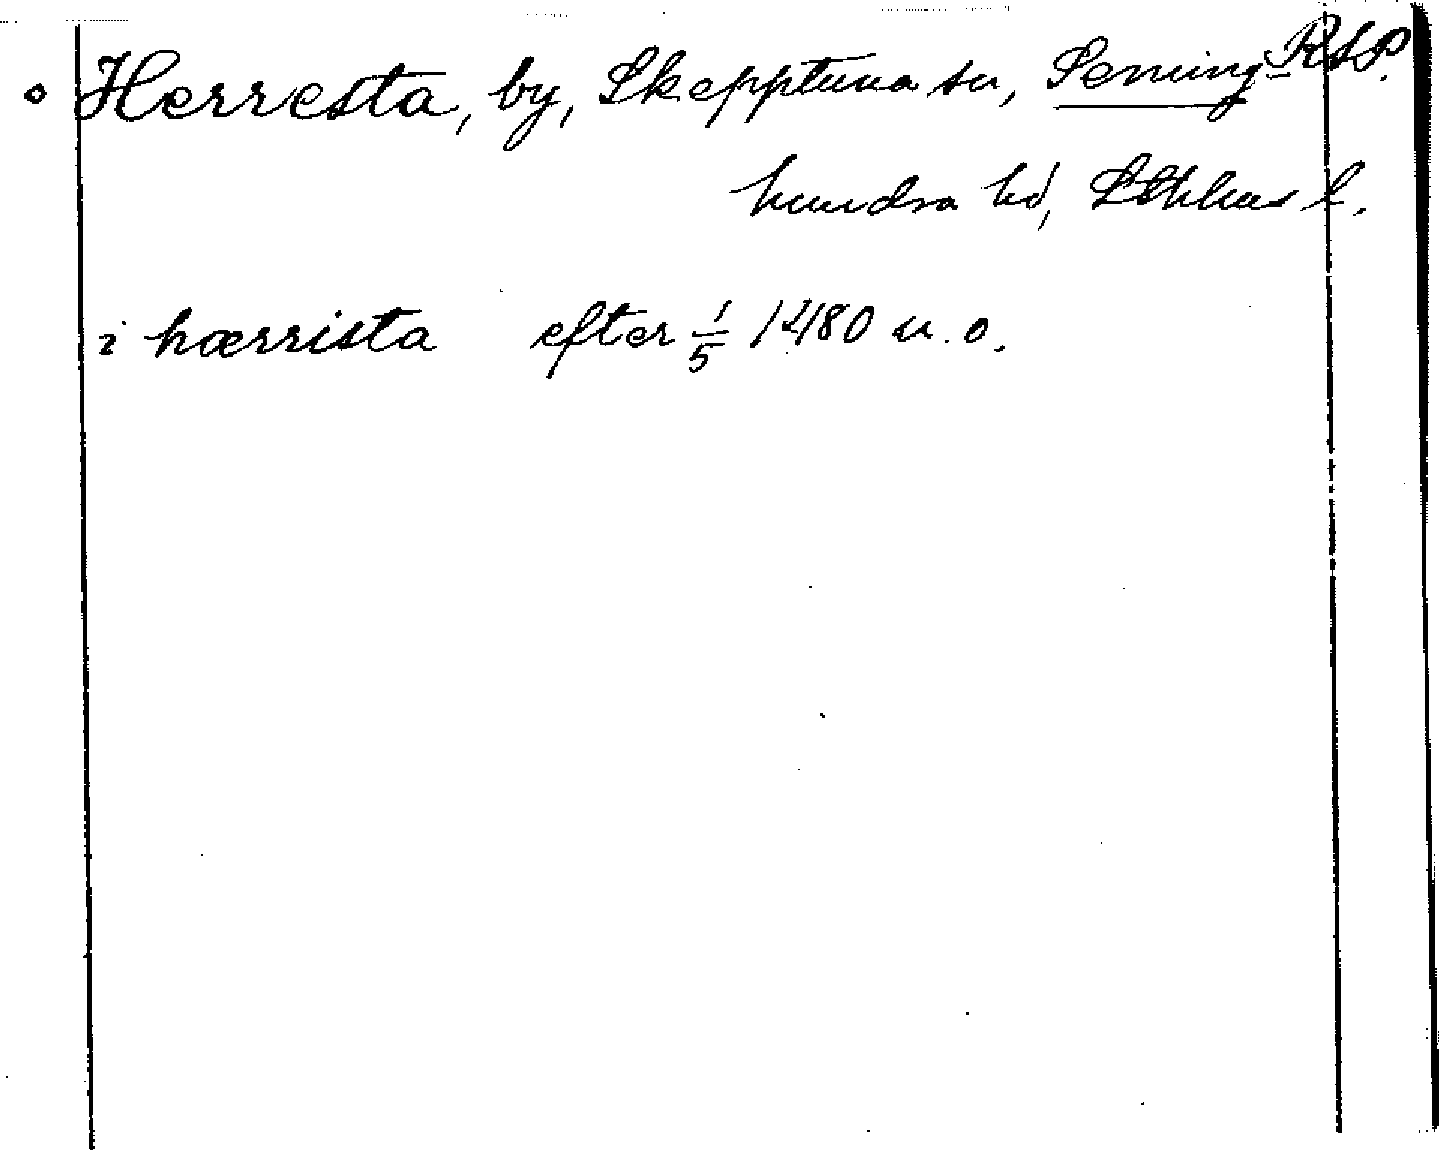 ° Herresta, by, Skepptuna sn, Seming- RAP.
hundra hd, Sthlms l.
i hærrista efter 1/5 1480 u.o.